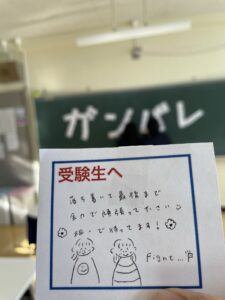 ガンバレ
受験生へ
落ち着いて最後まで
全力で頑張ってください
桜一で待ってます!
Fight...